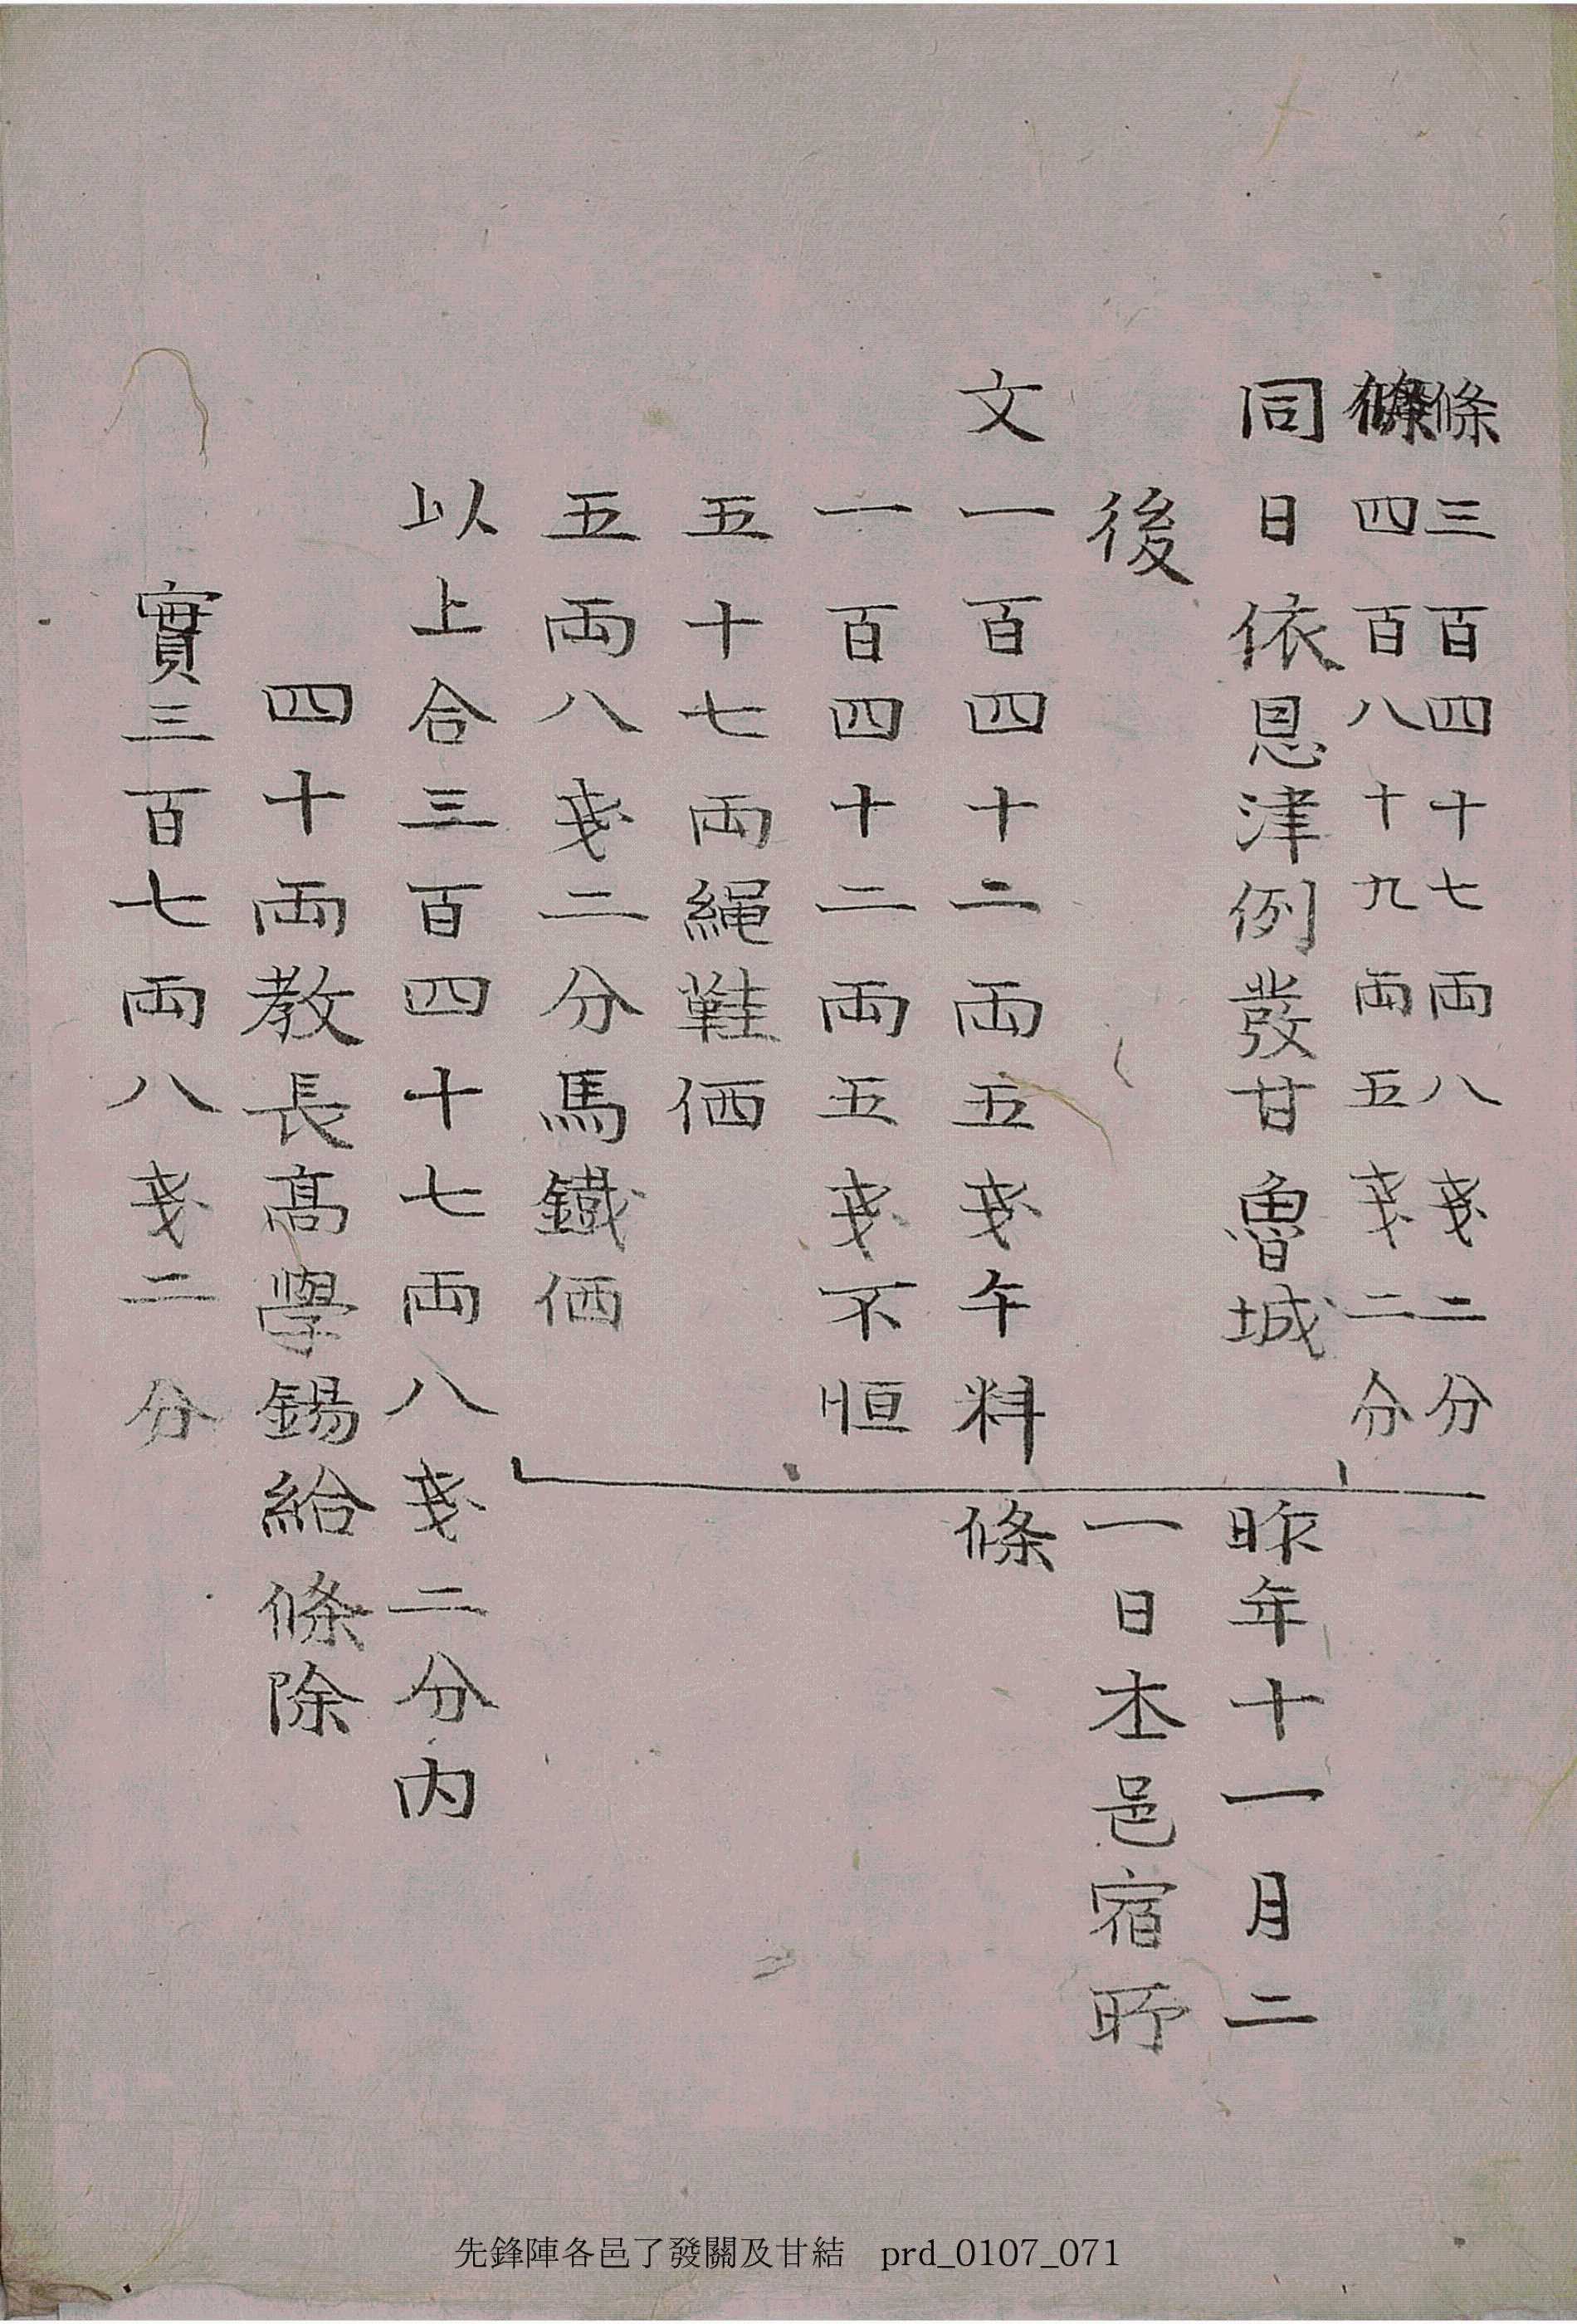 條三百四十七両八戔二分
條四百八十九両五戔二分
同日依恩津例發甘魯城
後
文一百四十二両五戔午料
一百四十二両五戔不恒
五十七両縄鞋価
五両八戔二分馬鐵価
昨年十一月二
一日本邑宿所
條
以上合三百四十七両八戔二分內
四十両教長髙學錫給條除
實三百七両八戔二分
先鋒陣各邑了發關及甘結 prd_0107_071